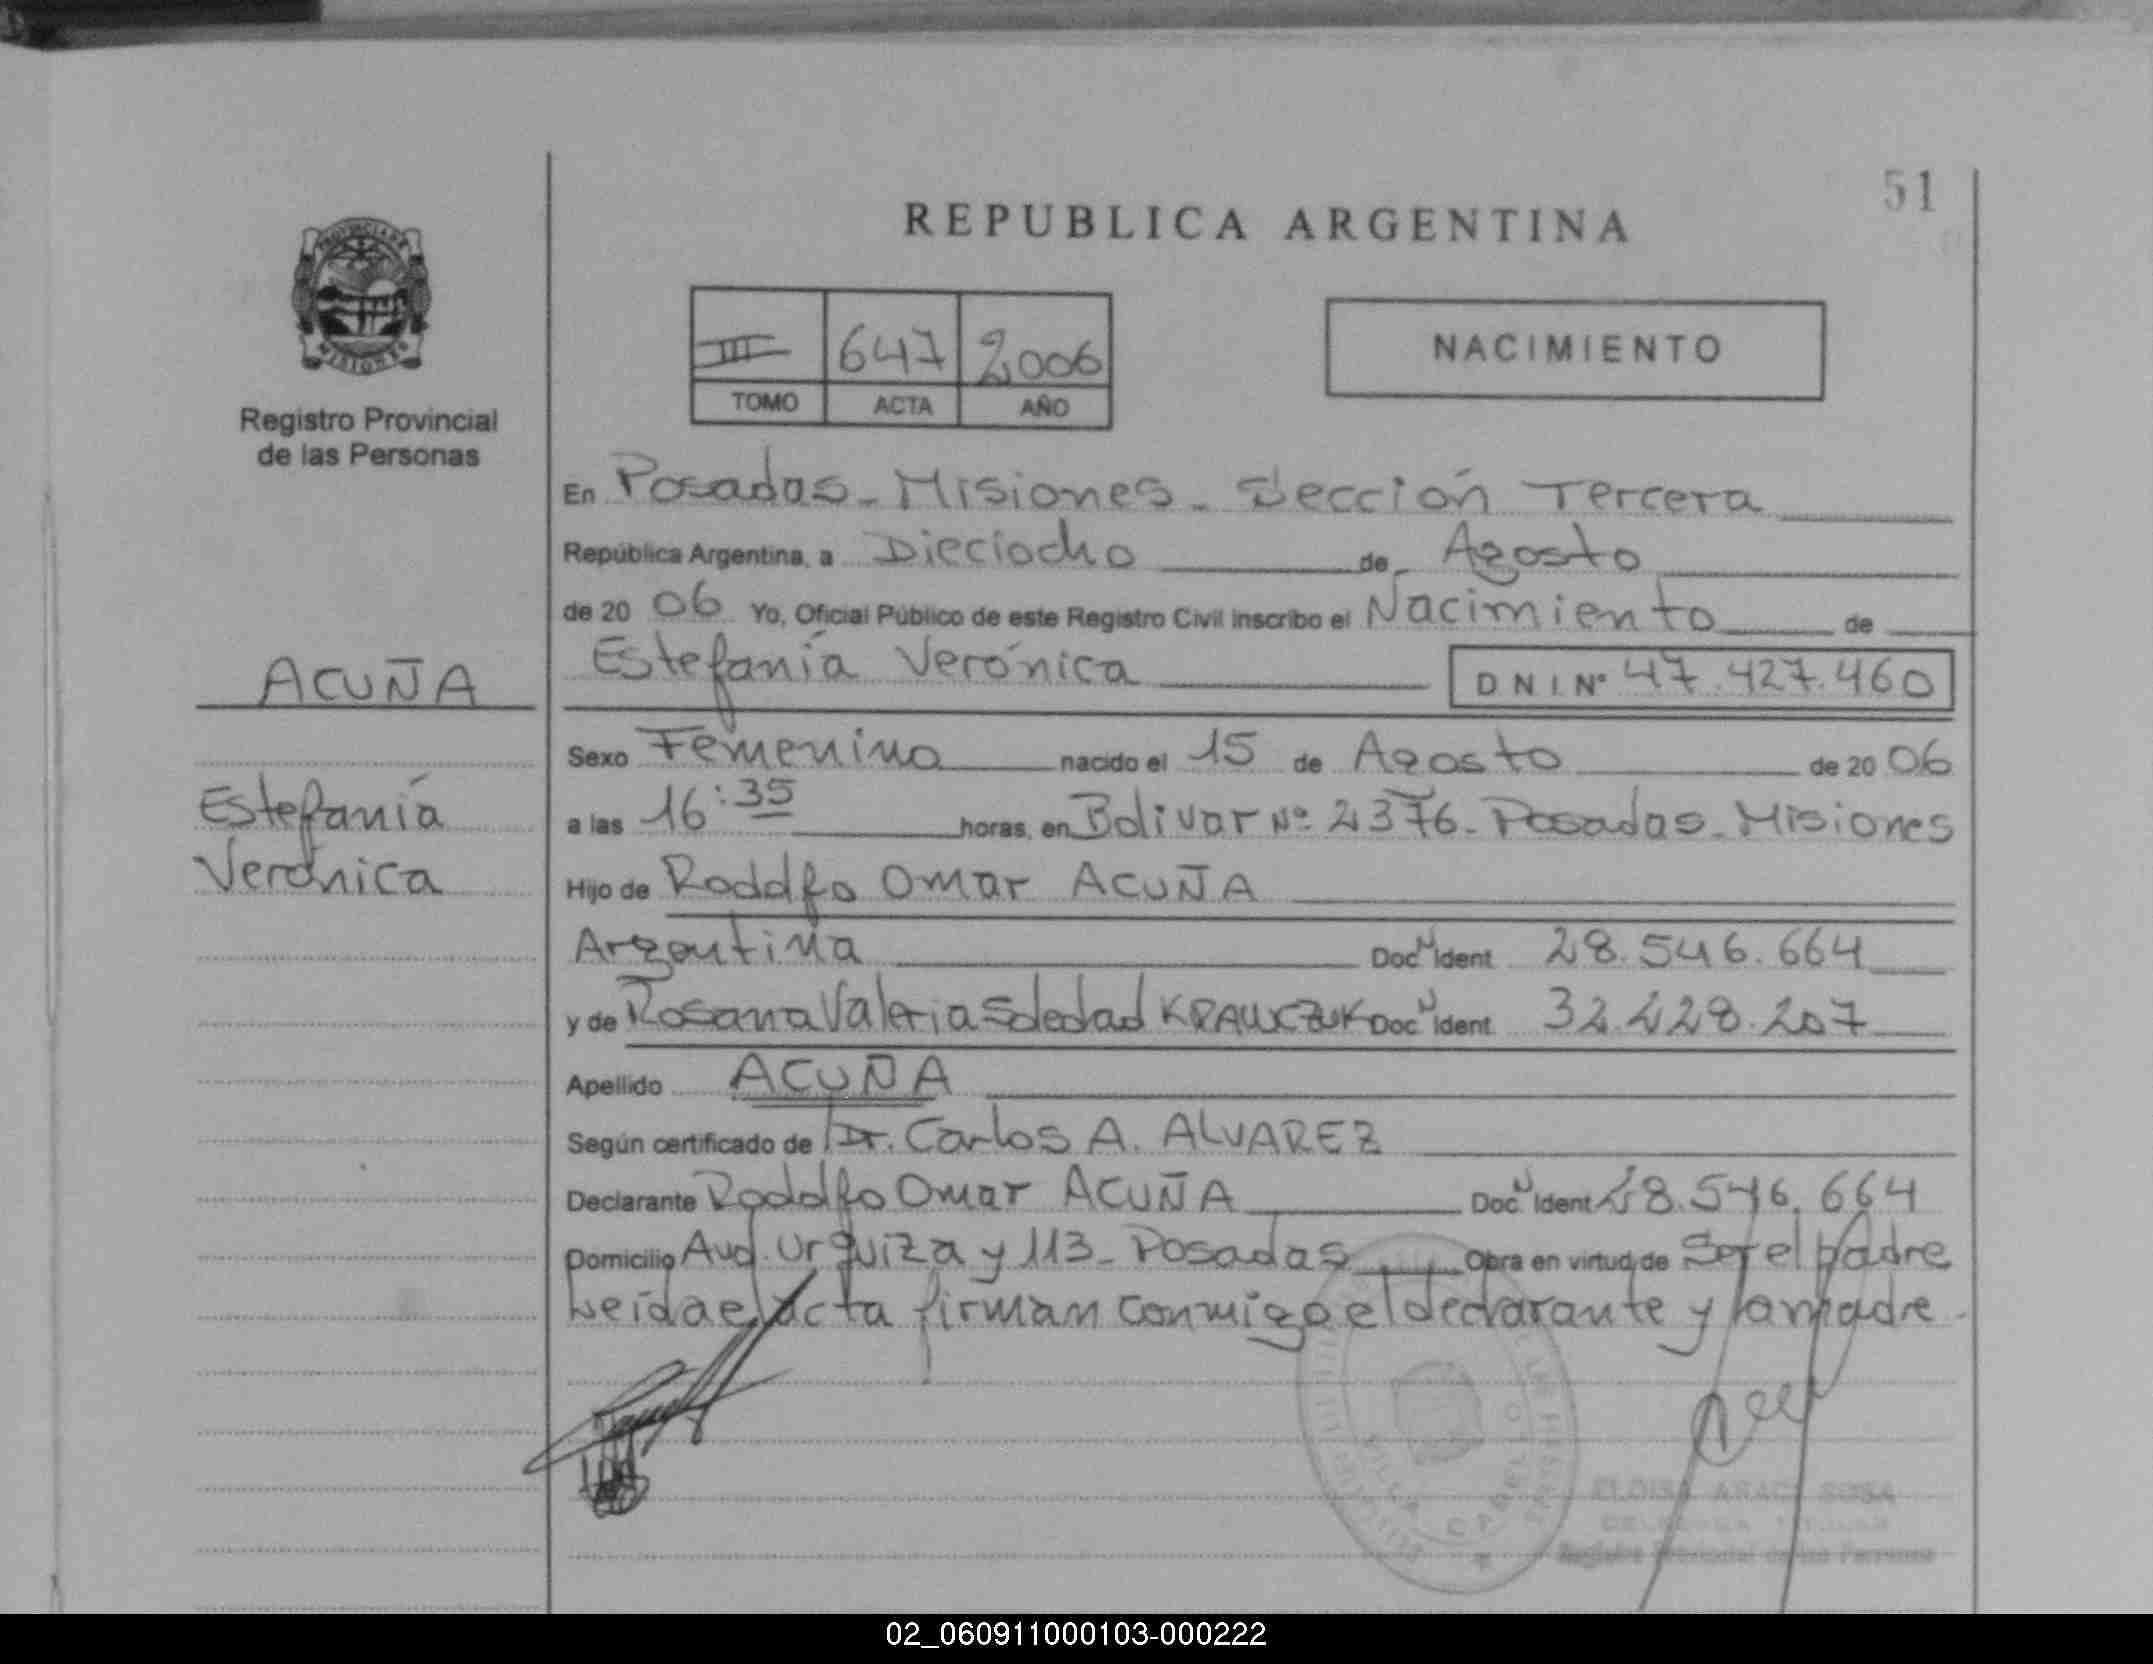 51
REPUBLICA ARGENTINA
PROVINCIA DE
MISIONES
Registro Provincial
de las Personas
III 647 2006
TOMO ACTA AÑO
NACIMIENTO
En Posadas - Misiones - Sección Tercera
República Argentina, a Dieciocho de Agosto
de 20 06 Yo, Oficial Público de este Registro Civil inscribo el Nacimiento de
Estefanía Verónica DNI Nº 47.427.460
ACUÑA
Estefanía
Verónica
Sexo Femenino nacido el 15 de Agosto de 20 06
a las 16:35 horas, en Bolivar Nº 2376- Posadas- Misiones
Hijo de Rodolfo Omar ACUÑA
Argentina Doc N Ident 28.546.664
y de Rosana Valeria Soledad KRAWCZUK Doc N Ident 32.228.207
Apellido ACUÑA
Según certificado de Dr. Carlos A. ALVAREZ
Declarante Rodolfo Omar ACUÑA Doc N Ident 28.546.664
Domicilio Avd. Urquiza y 113- Posadas Obra en virtud de Ser el padre
Leída el acta firman conmigo el declarante y la madre-
ELOISA ARACI SOSA
Registro Provincial de las Personas
02_060911000103-000222